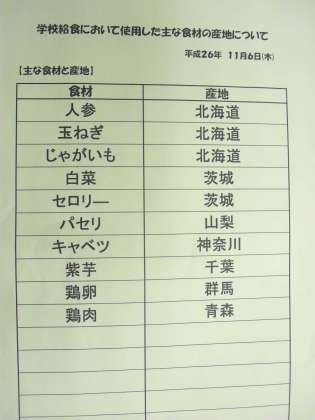 学校給食において使用した主な食材の産地について
平成26年 11月6日(木)
【主な食材と産地】
食材 産地
人参 北海道
玉ねぎ 北海道
じゃがいも 北海道
白菜 茨城
セロリー 茨城
パセリ 山梨
キャベツ 神奈川
紫芋 千葉
鶏卵 群馬
鶏肉 青森